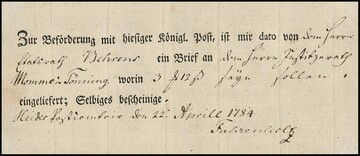 Zur Beförderung mit hiesiger Königl. Post, ist mir dato von dem Herrn
Etatsrath Behrens ein Brief an dem Herrn Justizrath
Momme Tönning worin 3 ₰ 12 ß seyn sollen
eingeliefert; Selbiges bescheinige.
Heider Postcomtoir den 22. Aprile 1784
Fahrenholtz